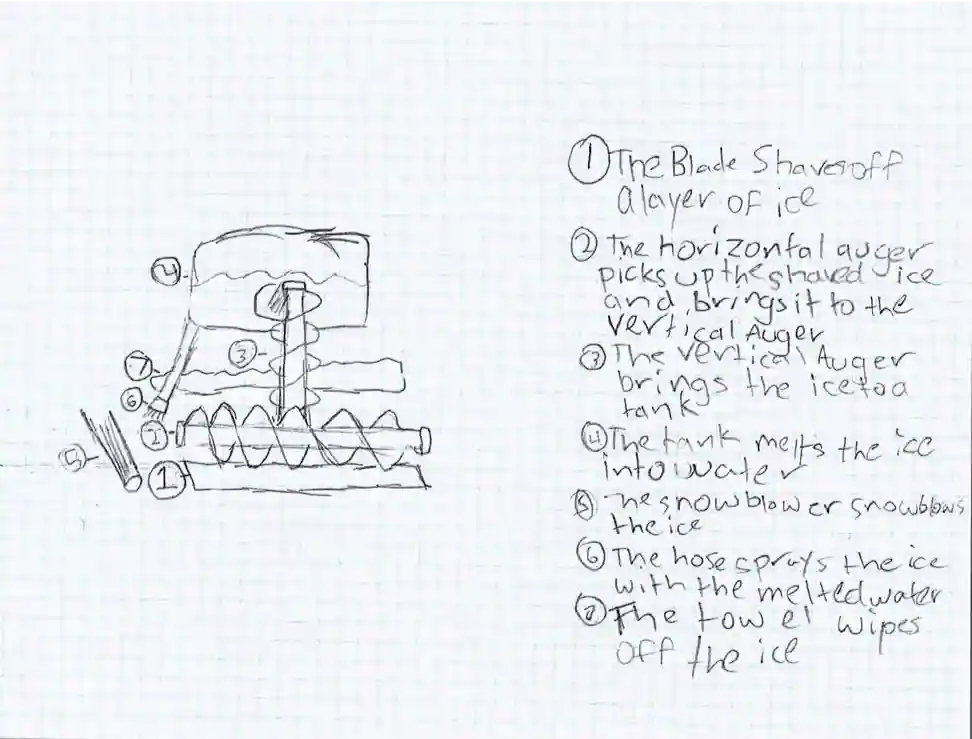 ① The Blade Shaves off
a layer of ice
② The horizontal auger
picks up the shaved ice
and brings it to the
vertical Auger
③ The vertical Auger
brings the ice to a
tank
④ The tank melts the ice
into water
⑤ The snowblower snowblows
the ice
⑥ The hose sprays the ice
with the melted water
⑦ The towel wipes
off the ice
4
3
7
6
2
5
1